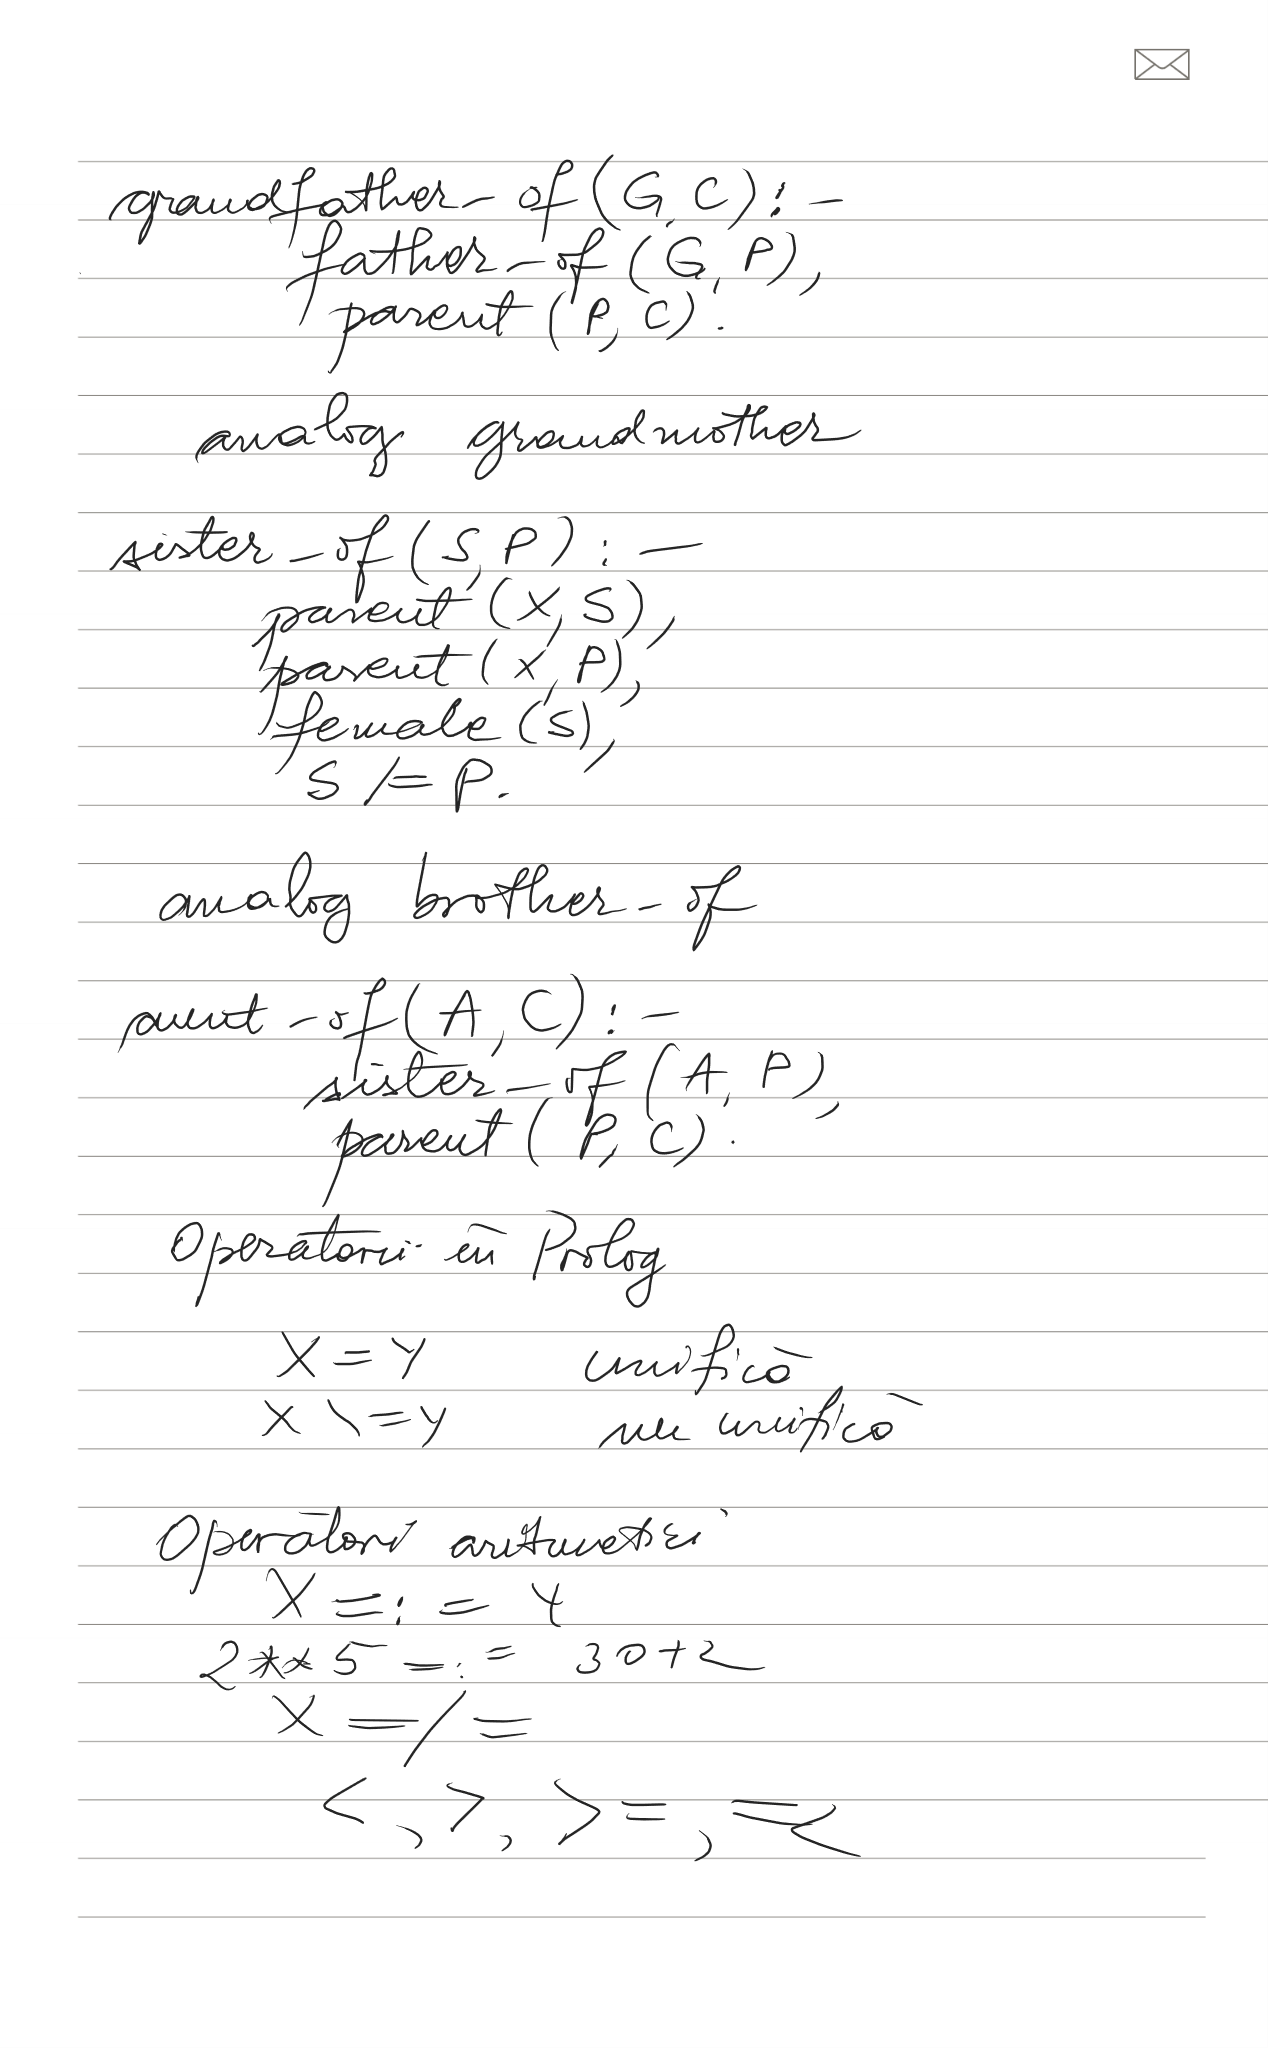 grandfather-of(G,C):-
father-of(G,P),
parent(P,C).
analog grandmother
sister-of(S,P):-
parent(X,S),
parent(X,P),
female(S),
S /= P.
analog brother-of
aunt-of(A,C):-
sister-of(A,P),
parent(P,C).
Operatori în Prolog
X = Y unifică
X \= Y nu unifică
Operatori aritmetici
X =:= Y
2**5 =:= 30+2
X =/=
<, >, >=, =<